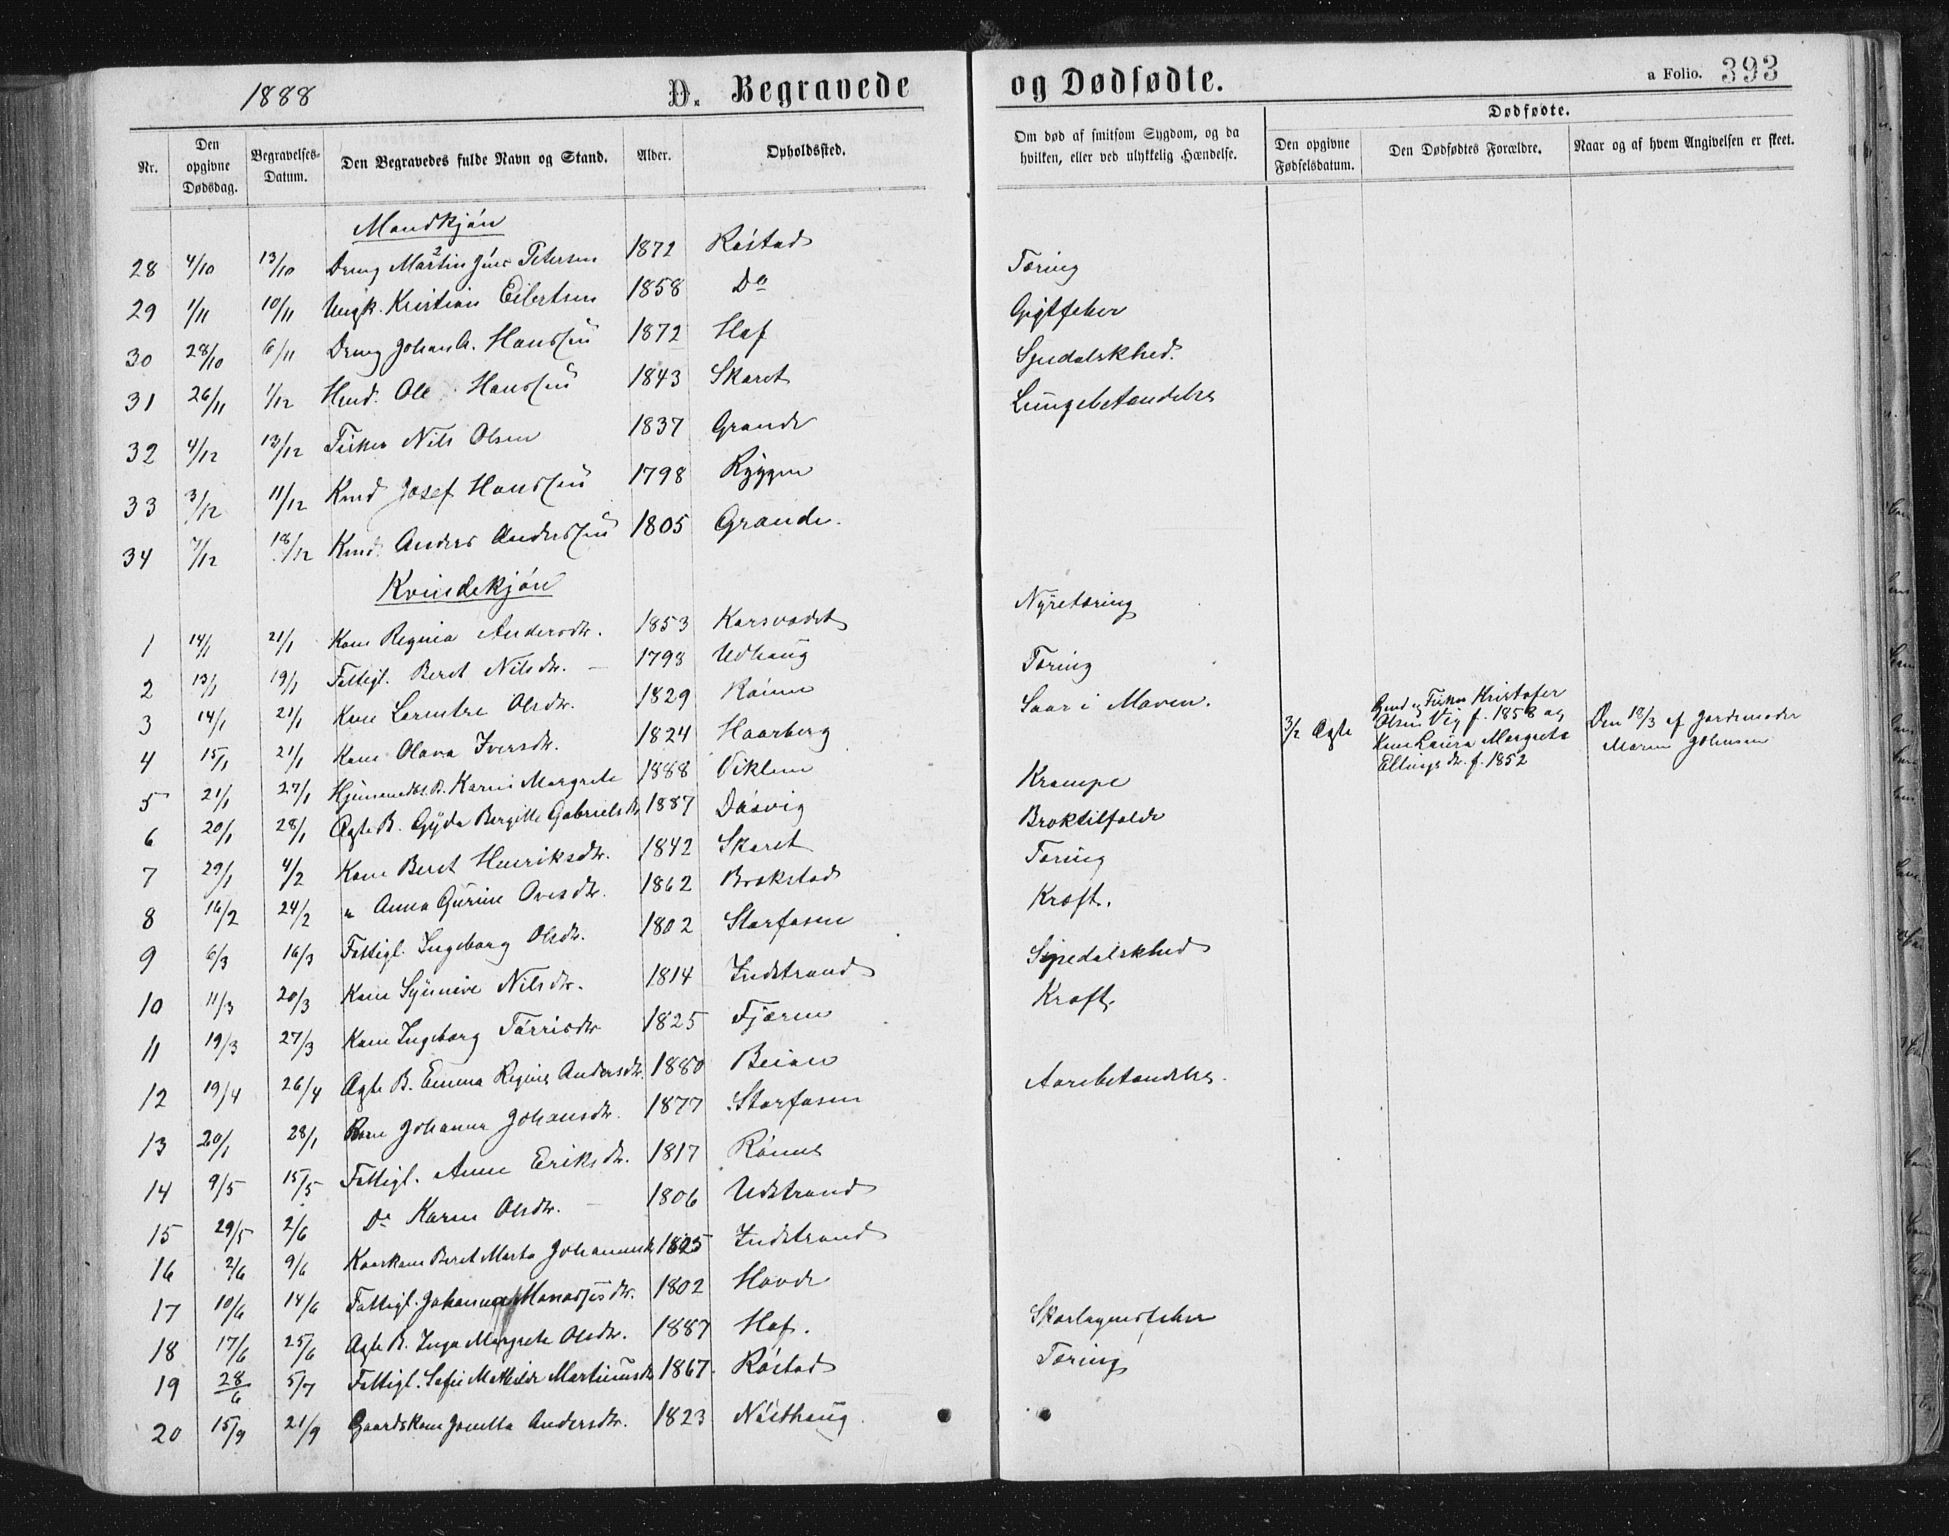 1888 D. Begravede og Dødfødte. a Folio. 393
Nr. Den opgivne Dødsdag. Begravelses-Datum. Den Begravedes fulde Navn og Stand. Alder. Opholdssted. Om død af smitsom Sygdom, og da hvilken, eller ved ulykkelig Hændelse. Dødfødte. Den opgivne Fødselsdatum. Den Dødfødtes Forældre. Naar og af hvem Angivelsen er skeet.
Mandkjøn
28 4/10 13/10 Dreng Martin Petersen 1872 Røstad Tæring
29 1/11 10/11 Ungk. Kristian Eilertsen 1858 Do Gigtfeber
30 28/10 6/11 Dreng Johan A. Hanssen 1872 Hof Spedalskhed.
31 26/11 1/12 Hmd. Ole Hanssen 1843 Skaret Lungebetændelse
32 4/12 13/12 Fisker Nils Olsen 1837 Grande
33 3/12 11/12 Kmd Josef Hanssen 1798 Ryggen
34 7/12 18/12 Kmd. Anders Anderssen 1805 Grande.
Kvindekjøn
1 14/1 21/1 Kone Regina Andersdtr. 1853 Karsvadet Nyretæring
2 13/1 19/1 Fattigl. Beret Nilsdtr. — 1798 Udhaug Tæring
3 14/1 21/1 Kone Lorentze Olsdtr. 1829 Rønne Saar i Maven.
3/2 Ægte Gmd og Fisker Kristofer Olsen Vig f. 1858 og Kone Laura Margrete Ellingsdtr. f. 1852 Den 18/3 af Jordemoder Maren Johnsen
4 15/1 21/1 Kone Olava Iversdtr. 1824 Haarberg
5 21/1 27/1 Hjemmedbt. B. Karen Margrete 1888 Viklem Krampe
6 20/1 28/1 Ægte B. Gyda Bergitte Gabrielsdtr 1887 Døsvig Broktilfælde
7 29/1 4/2 Kone Beret Henriksdtr. 1842 Skaret Tæring
8 16/2 24/2 " Anna Gurine Ovesdtr. 1862 Brekstad Kræft.
9 6/3 16/3 Fattigl. Ingeborg Olsdtr. 1802 Storfosen Spedalskhed
10 11/3 20/3 Kone Synnive Nilsdtr. 1814 Indstrand Kræft.
11 19/3 27/3 Kone Ingeborg Tørrisdtr 1825 Fjæren
12 19/4 26/4 Ægte B. Emma Regine Andersdtr. 1880 Beian Aarebetændelse.
13 20/1 28/1 Kone Johanna Johansdtr. 1877 Storfosen
14 9/5 15/5 Fattigl. Anne Eriksdtr. 1817 Rønne
15 29/5 2/6 Do Karen Olsdtr. — 1806 Udstrand
16 2/6 9/6 Kaarkone Beret Marta Johannesdtr 1825 Indstrand
17 10/6 14/6 Fattigl. Johanna Manassesdtr. 1802 Hovde
18 17/6 25/6 Ægte B. Inga Margrete Olsdtr. 1887 Hof. Skarlagensfeber
19 28/6 5/7 Fattigl. Sofie Mathilde Martinusdtr 1867. Røstad Tæring
20 15/9 21/9 Gaardskone Jonetta Andersdtr. 1823 Nøsthaug.